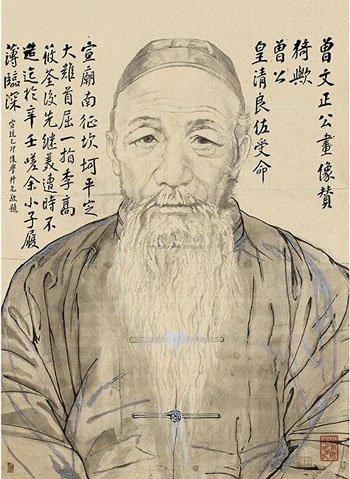 曾文正公畫像贊
猗歟
曾公
皇清良佐受命
宣廟南征坎坷平定
大難首屈一指李高
筱荃後先繼美遭時不
造迄於辛壬嗟余小子履
薄臨深